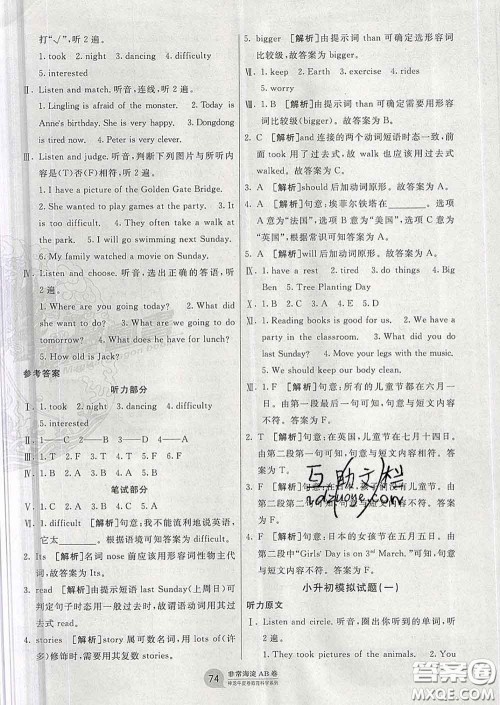 打“√”，听 2 遍。
1. took 2. night 3. dancing 4. difficulty
5. interested
Ⅱ. Listen and match. 听音，连线，听 2 遍。
1. Lingling is afraid of the monster. 2. Today is
Anne's birthday. She is very happy. 3. Dongdong
is tired now. 4. Peter is very clever.
Ⅲ. Listen and judge. 听音，判断下列图片与所听内
容是(T)否(F)相符，听 2 遍。
1. I have a picture of the Golden Gate Bridge.
2. She wanted to play games at the party. 3. It
is too difficult. 4. They often take a walk at the
park. 5. I will go swimming next Sunday.
6. My family watched a movie on Sunday.
Ⅳ. Listen and choose. 听音，选出正确的答语，听
2 遍。
1. Where are you going today? 2. What did
she want to do? 3. What are we going to do
tomorrow? 4. What does he have for lunch?
5. How old is Jack?
参考答案
听力部分
Ⅰ. 1. took 2. night 3. dancing 4. difficulty
5. interested
Ⅱ. 1——C 2——D 3——A 4——B
笔试部分
Ⅵ. 1. difficult [解析]句意：我不能流利地说英语，
它太______。故答案为 difficult。
2. Its [解析]名词 nose 前应该用形容词性物主代
词，故答案为 Its。
3. read [解析]由提示短语 last Sunday（上周日）可
判断句子时态用一般过去时，故谓语动词用过去
式 read。
4. stories [解析]story 属可数名词，用 lots of（许
多）修饰时，需要用其复数形式，故答案为 stories。
5. bigger [解析]由提示词 than 可确定选形容词
比较级，故答案为 bigger。
Ⅶ. 1. keep 2. Earth 3. exercise 4. rides
5. may
Ⅷ. 1. B [解析]由提示词 than 可确定需要用形容
词比较级(bigger)。故答案为 B。
2. C [解析]and 连接的两个动词短语时态一致，前
面 took 用了过去式，故 walk 也应该用过去式
walked。故答案为 C。
3. A [解析]should 后加动词原形。故答案为 A。
4. A [解析]句意：埃菲尔铁塔在______。选项 A
意为“法国”，选项 B 意为“美国”，选项 C 意为
“英国”，根据常识可知答案为 A。
5. A [解析]will 后加动词原形。故答案为 A。
Ⅸ. 1. a rest 2. tired 3. do things 4. Big
Ben 5. Tree Planting Day
Ⅺ. 1. Reading books is good for us. 2. We have a
party in the classroom. 3. What did you do
last Sunday? 4. Move your legs with the music.
5. We should keep our body clean.
Ⅻ. 1. F [解析]句意：所有的儿童节都在六月一
日。由第二段第一句可知，句意与短文内容不
符。故答案为 F。
2. T [解析]句意：在英国，儿童节在七月十四日，
由第二段第一句可知，句意与短文内容相符。故
答案为 T。
互助文档
hdzuoye.com
4. F [解析]句意：日本的女孩节在五月五日。由
第二段中的“Girls' Day is on 3rd March.”可知，
句意与短文内容不符。故答案为 F。
小升初模拟试题(一)
听力原文
Ⅰ. Listen and circle. 圈出你所听到的单词，听
2 遍。
1. I am standing in front of the mirror.
2. There are some sweets on the table.
74
非常海淀 AB 卷
作业答案网
MXQE.COM